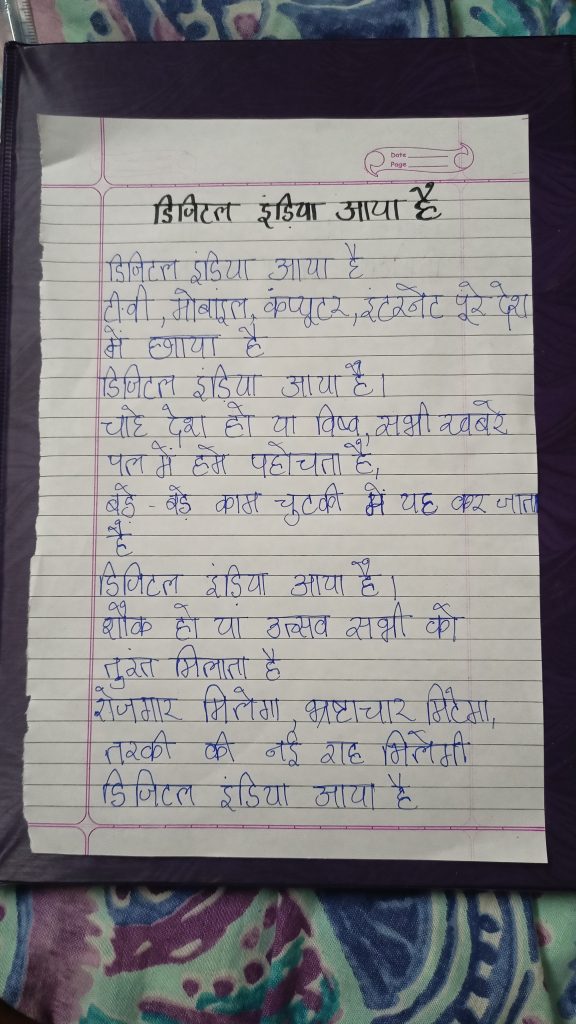 Date
Page
डिजिटल इंडिया आया है
डिजिटल इंडिया आया है
टी.वी, मोबाइल, कंप्यूटर, इंटरनेट पूरे देश
में छाया है
डिजिटल इंडिया आया है।
चाहे देश हो या विष्व, सभी खबरे
पल में हमे पहोचता है,
बड़े - बड़े काम चुटकी में यह कर जाता
है
डिजिटल इंडिया आया है।
शौक हो या उत्सव सभी को
तुरंत मिलाता है
रोजगार मिलेगा, भ्रष्टाचार मिटेगा,
तरकी की नई राह मिलेगी
डिजिटल इंडिया आया है